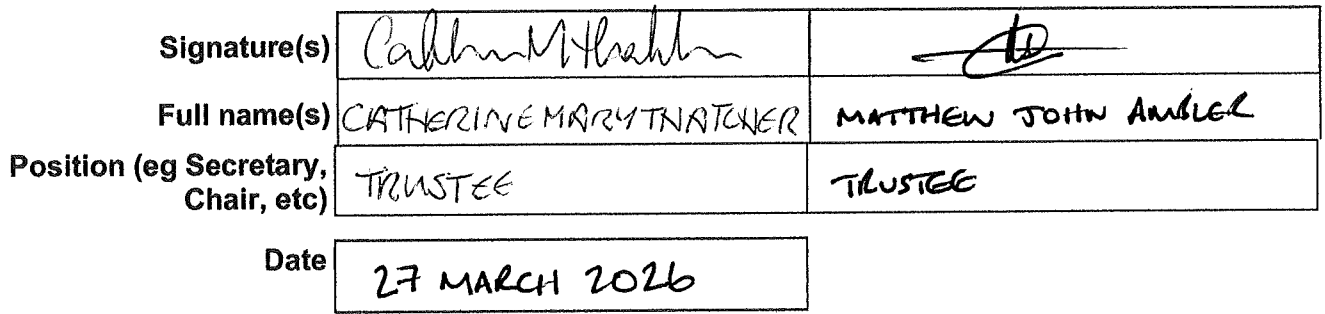 Signature(s)
Full name(s) CATHERINE MARY THATCHER MATTHEW JOHN AMBLER
Position (eg Secretary, TRUSTEE TRUSTEE
Chair, etc)
Date 27 MARCH 2026